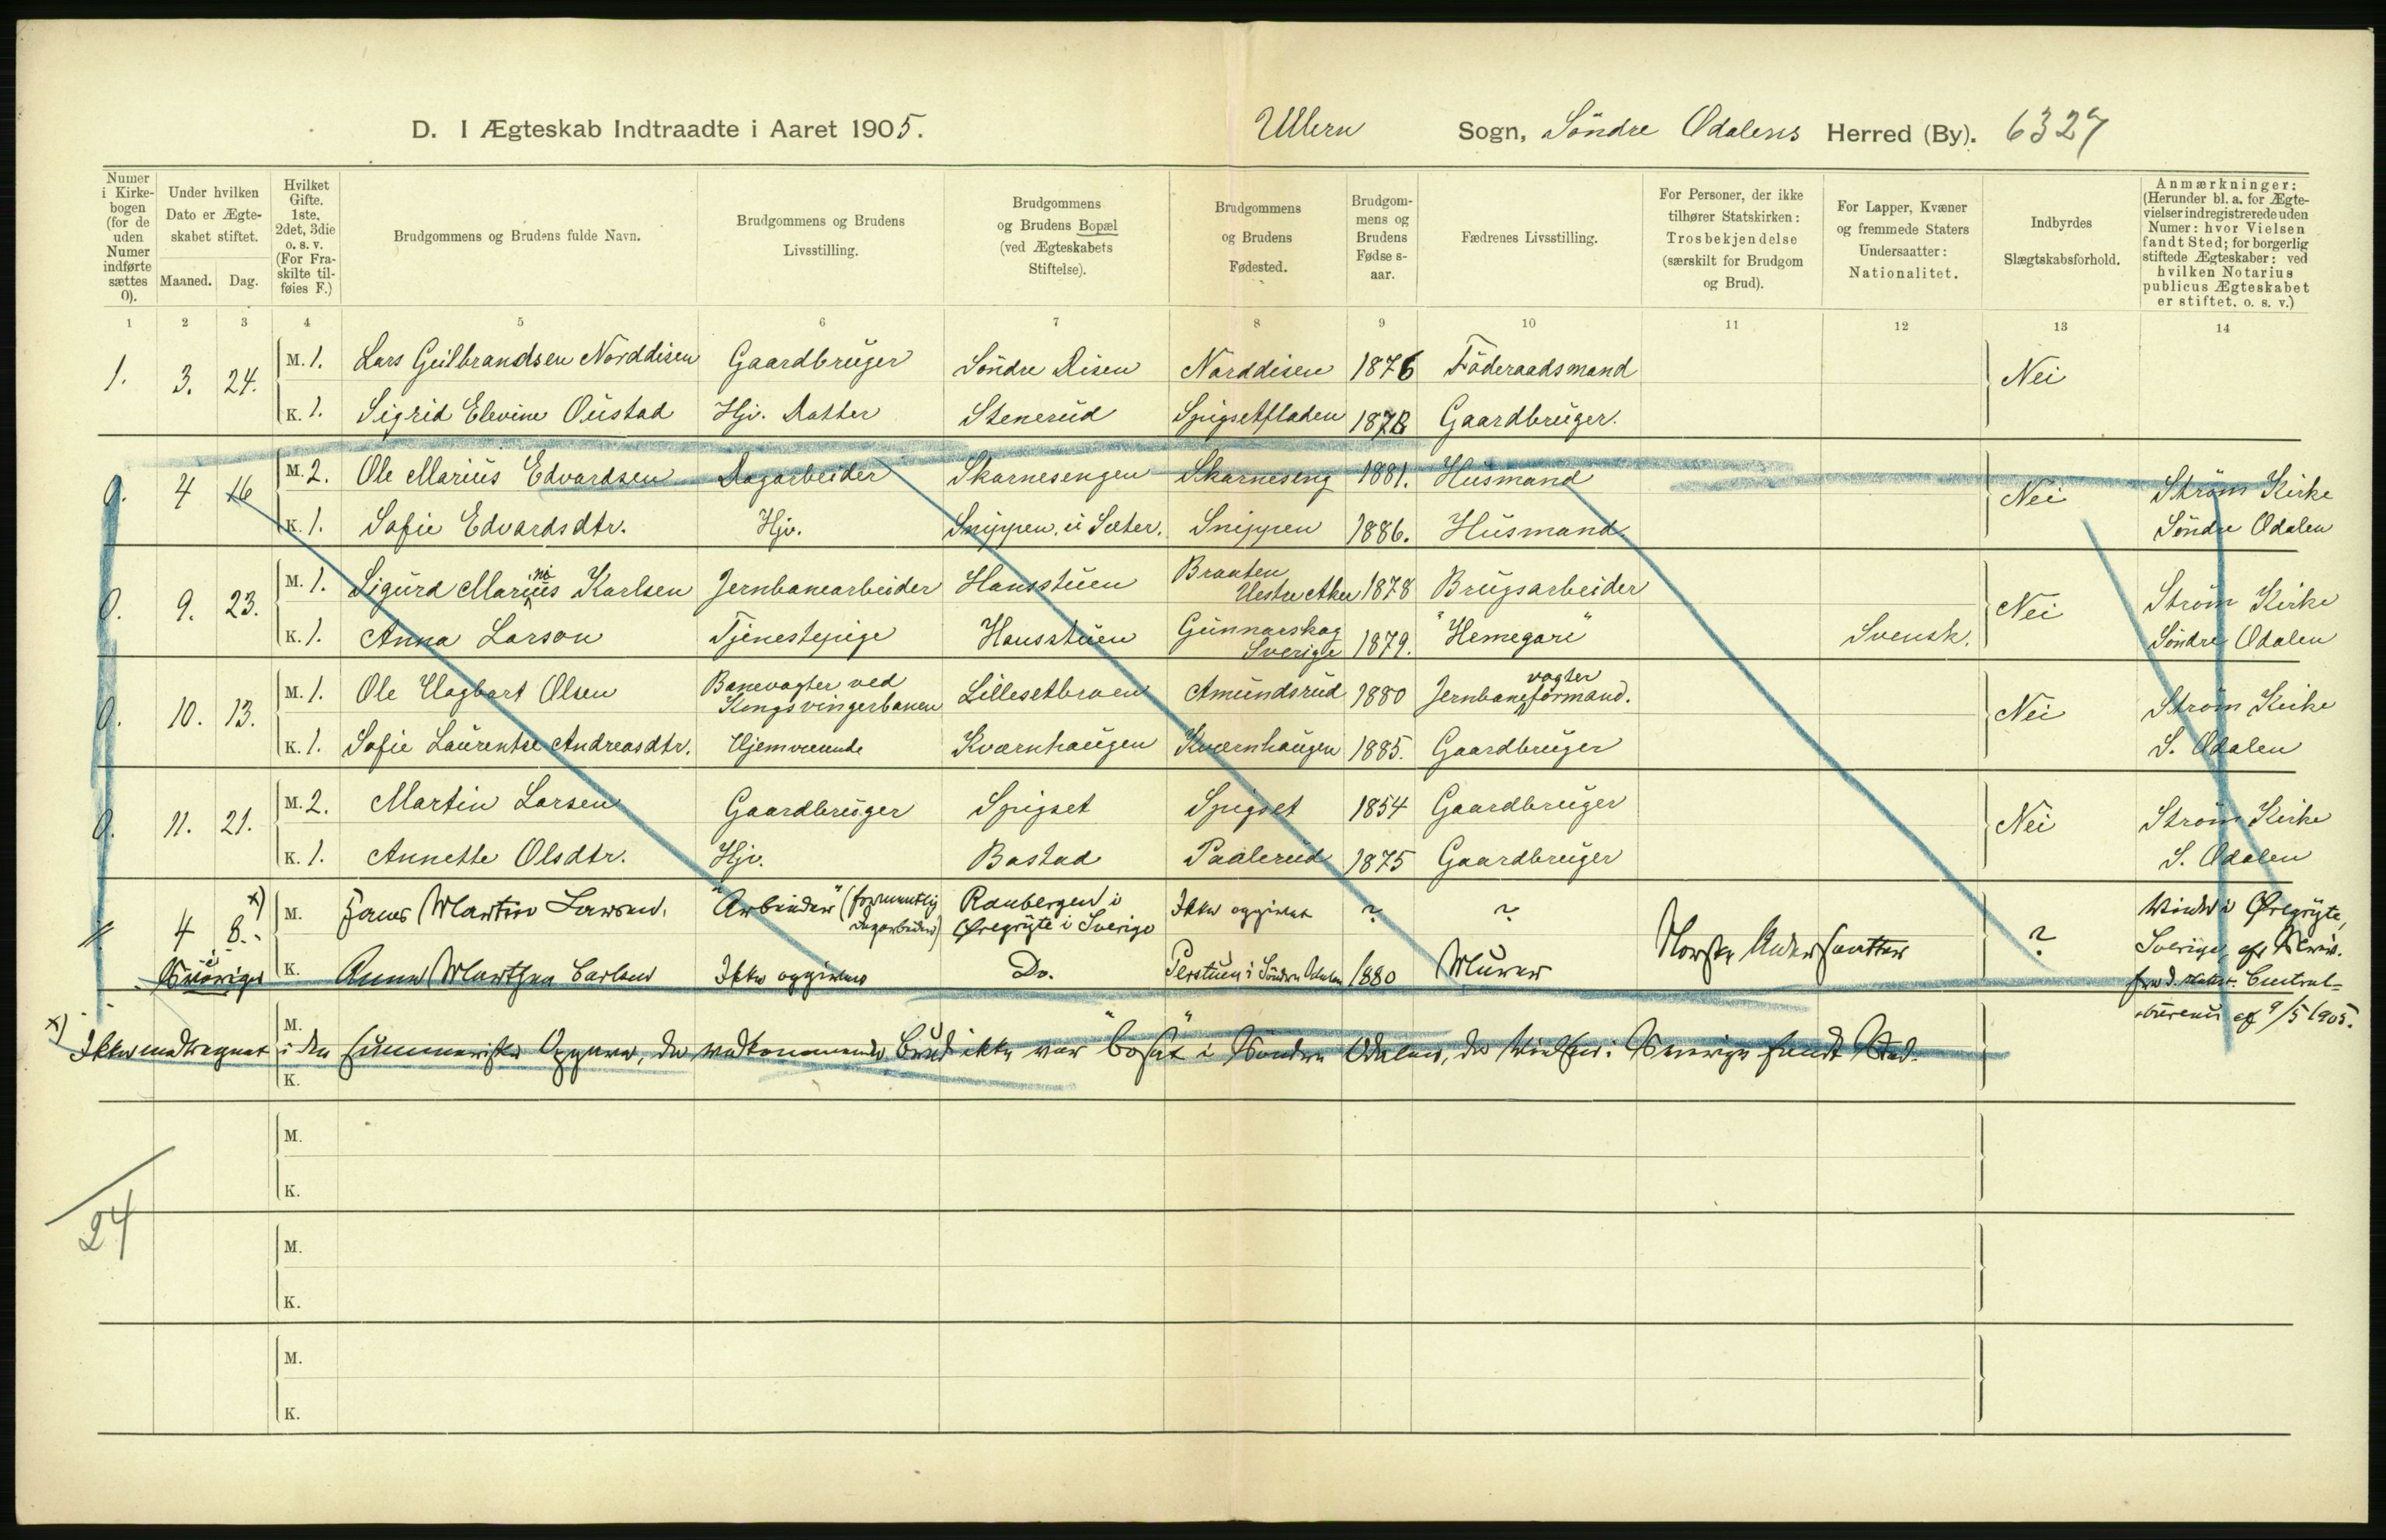 D. I Ægteskab Indtraadte i Aaret 1905. Ullern Sogn, Söndre Odalens Herred (By). 6327
Numer i Kirkebogen (for de uden Numer indførte sættes 0).
Under hvilken Dato er Ægteskabet stiftet.
Maaned. Dag.
Hvilket Gifte. 1ste, 2det, 3die o. s. v. (For Fraskilte tilføies F.)
Brudgommens og Brudens fulde Navn.
Brudgommens og Brudens Livsstilling.
Brudgommens og Brudens Bopæl (ved Ægteskabets Stiftelse).
Brudgommens og Brudens Fødested.
Brudgommens og Brudens Fødse s-aar.
Fædrenes Livsstilling.
For Personer, der ikke tilhører Statskirken: Trosbekjendelse (særskilt for Brudgom og Brud).
For Lapper, Kvæner og fremmede Staters Undersaatter: Nationalitet.
Indbyrdes Slægtskabsforhold.
Anmærkninger: (Herunder bl. a. for Ægtevielser indregistrerede uden Numer: hvor Vielsen fandt Sted; for borgerlig stiftede Ægteskaber: ved hvilken Notarius publicus Ægteskabet er stiftet. o. s. v.)
1 2 3 4 5 6 7 8 9 10 11 12 13 14
1. 3. 24. M. 1. Lars Gulbrandsen Norddisen Gaardbruger Söndre Disen Norddisen 1876 Föderaadsmand Nei
K. 1. Sigrid Elevine Oustad Hjv. Datter Stenerud Spigsetfladen 1878 Gaardbruger.
0. 4 16 M. 2. Ole Marius Edvardsen Dagarbeider Skarnesengen Skarneseng 1881. Husmand Nei Ström Kirke
K. 1. Sofie Edvardsdtr. Hjv. Snippen. u Sæter. Snippen 1886. Husmand. Söndre Odalen
0. 9. 23. M. 1. Sigurd Marinius Karlsen Jernbanearbeider Hansstuen Braaten Vestre Aker 1878 Brugsarbeider Nei Ström Kirke
K. 1. Anna Larson Tjenestepige Hansstuen Gunnarskog Sverige 1879. "Hemegare" Svensk. Söndre Odalen
0. 10. 13. M. 1. Ole Hagbart Olsen Banevogter ved Kongsvingerbanen Lillesetbraen Amundsrud 1880 Jernbanevogterformand. Nei Ström Kirke
K. 1. Sofie Laurentse Andreasdtr. Hjemværende Kværnhaugen Kværnhaugen 1885. Gaardbruger S. Odalen
0. 11. 21. M. 2. Martin Larsen Gaardbruger Spigset Spigset 1854 Gaardbruger Nei Ström Kirke
K. 1. Annette Olsdtr. Hjv. Bastad Paalerud 1875 Gaardbruger S. Odalen
// 4 8. x) M. Martin Larsen. "Arbeider" (formentlig Dagarbeider) Ranbergen i Øregryte i Sverige Ikke opgivet ? ? Norske Undersaatter ? Viede i Øregryte,
i Sverige K. Anna Marthea Carlsen Ikke opgivet Do. Perstuen i Söndre Odalen 1880 Murer Sverige,
Central-
bureau af 9/5 1905.
x) Ikke medregnet i den summariske Opgave, da vedkommende Brud ikke var "bosat" i Söndre Odalen, da Vielsen i Sverige fandt Sted.
M.
K.
M.
K.
M.
K.
M.
K.
24